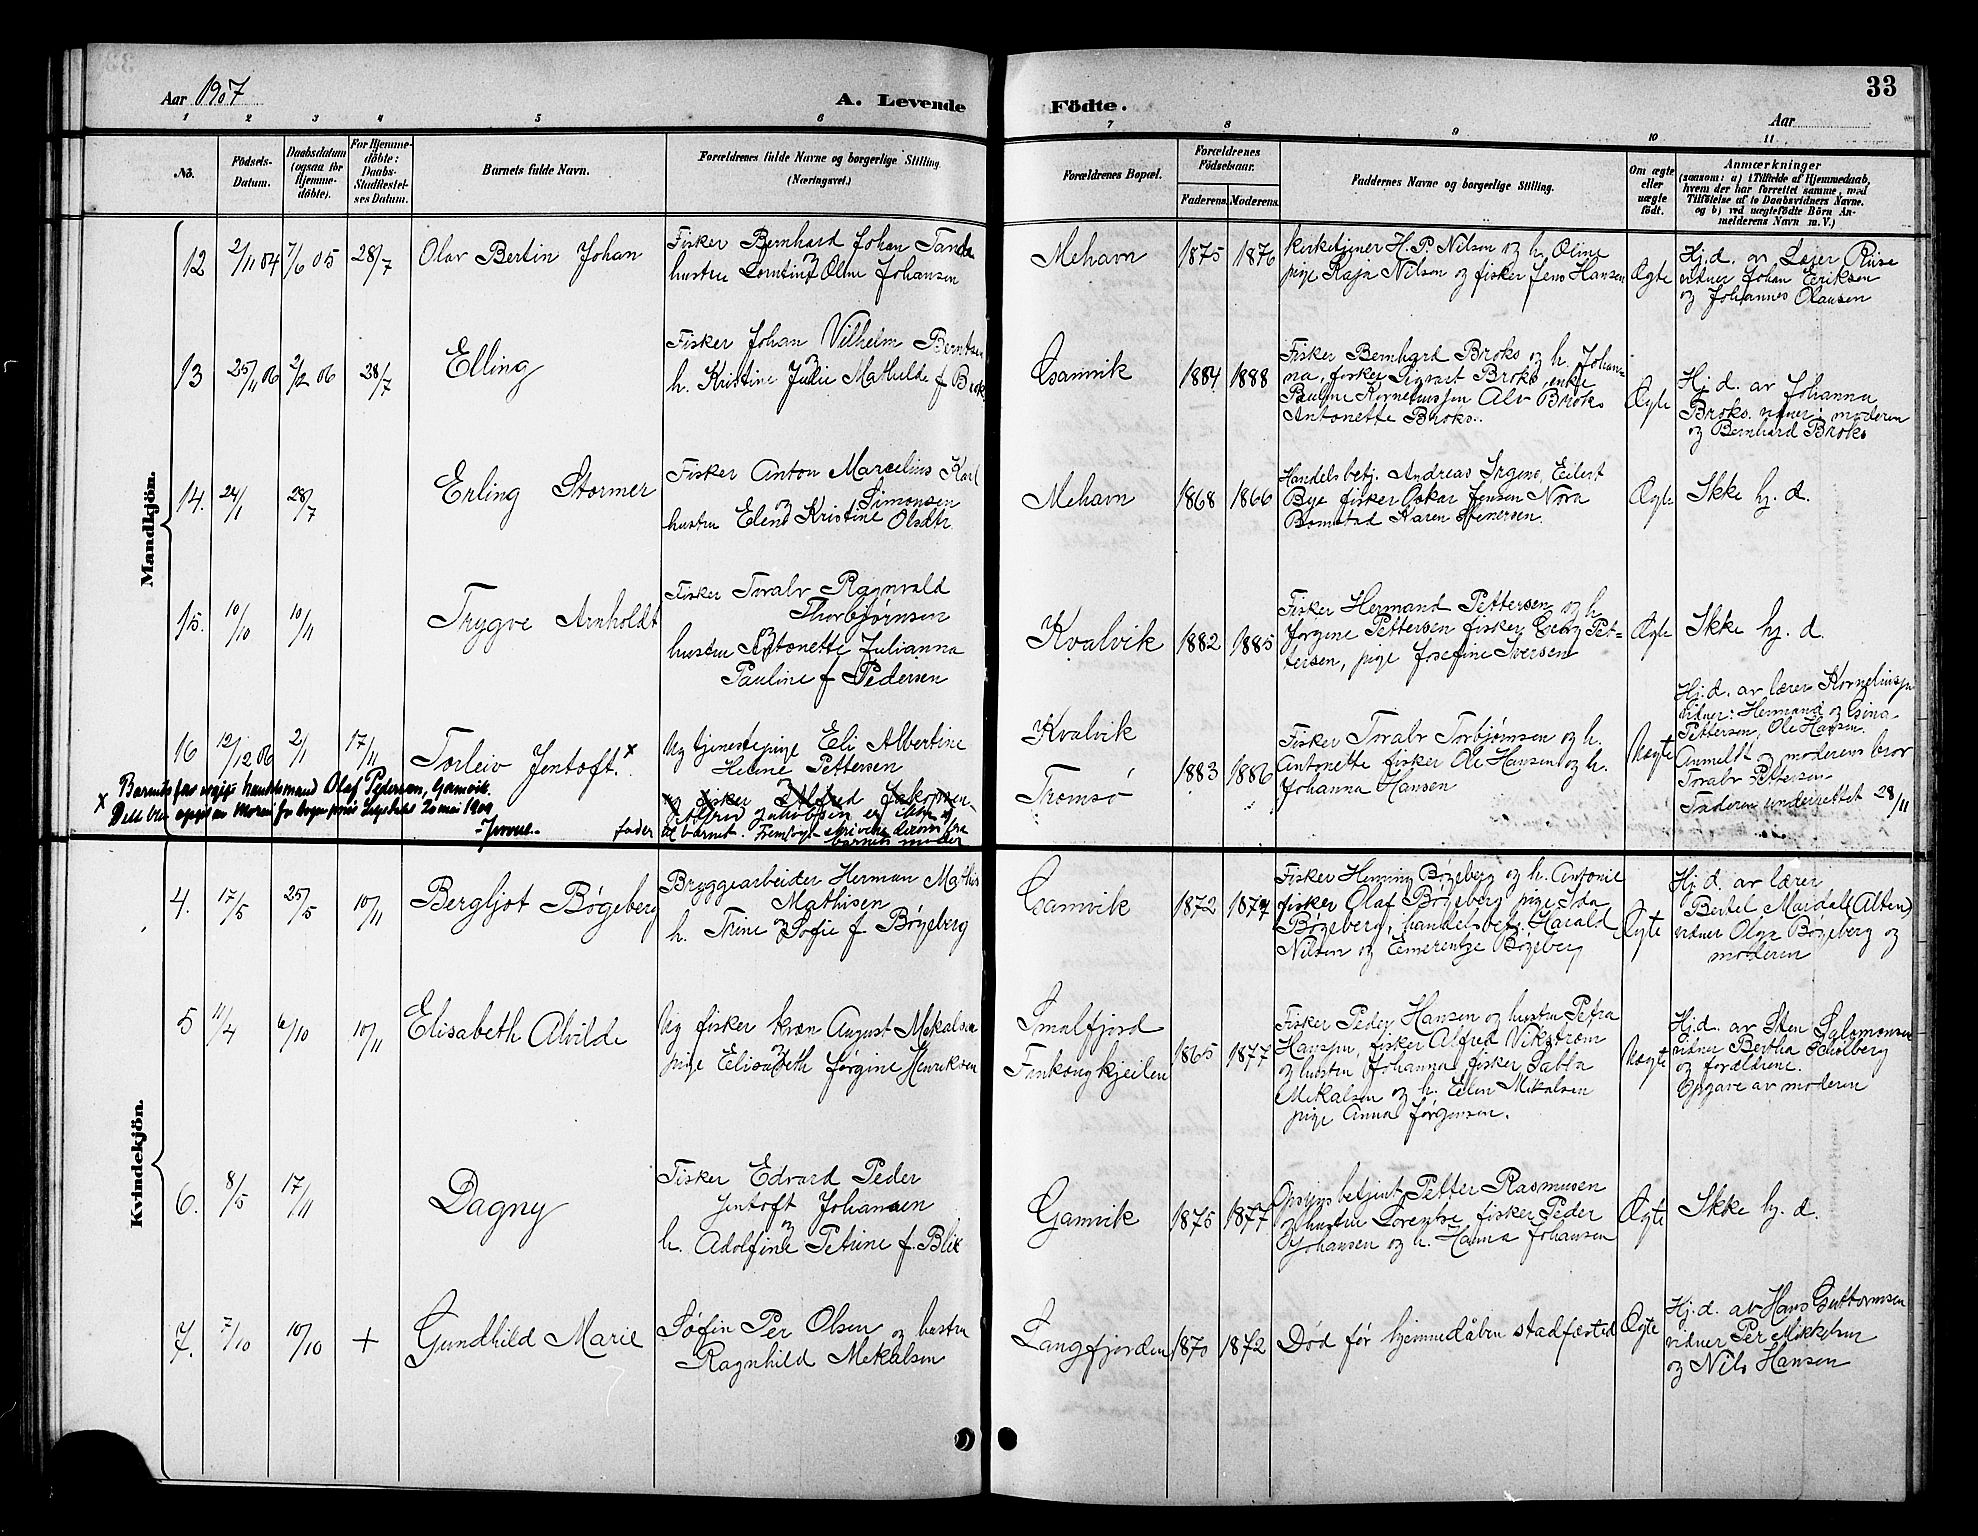 33
Aar 1907
A. Levende Födte.
Aar
1 2 3 4 5 6 7 8 9 10 11
No.
Födsels-Datum.
Daabsdatum (ogsaa for Hjemmedöbte).
For Hjemmedöbte: Daabs-Stadfæstelses Datum.
Barnets fulde Navn.
Forældrenes fulde Navne og borgerlige Stilling. (Næringsvei.)
Forældrenes Bopæl.
Forældrenes Födselsaar.
Faderens. Moderens.
Faddernes Navne og borgerlige Stilling.
Om ægte eller uægte födt.
Anmærkninger
(saasom: a) i Tilfælde af Hjemmedaab,
hvem der har forrettet samme, med
Tilföielse af to Daabsvidners Navne.
og b) ved uægtefödte Börn An-
melderens Navn m. V.)
Mandkjön.
12 2/11 04 7/6 05 28/7 Olav Bertin Johan
Fisker Bernhard Johan Tande
hustru Lorntine Oline Johansen
Mehavn 1875 1876
Kirketjener H. P. Nilsen og h. Oline
pige Kaja Nilsen og fisker Jens Hansen
Ægte
Hj.d. av Lejer Riise
vidner Johan Eriksen
og Johannes Olausen
13 25/11 06 2/2 06 28/7 Elling
Fisker Johan Vilhelm Berntsen
h. Kristine Julie Mathilde f Brok
Gamvik 1884 1888
Fisker Bernhard Broks og h. Johan-
na, fisker Sigvart Broks, enke
Pauline Korneliussen Alv Broks
Antonette Broks.
Ægte
Hj.d. av Johanna
Broks. vidner: moderen
og Bernhard Broks
14. 24/1 28/7 Erling Stormer
Fisker Anton Marcelius Karl
Simonsen
hustru Elen Kristine Olsdtr.
Mehavn 1868 1866
Handelsbetj. Andreas Irgens, Eilert
Bye fisker Oskar Jensen Nora
Bomstad Karen Stenersen.
Ægte Ikke hj. d.
15. 10/10 10/11 Trygve Arnholdt
Fisker Toralv Ragnvald
Thorbjørnsen
hustru Antonette Julianna
Pauline f Pedersen
Kvalvik 1882 1885
Fisker Hermand Pettersen og h.
Jørgine Pettersen fisker Georg Pet-
tersen, pige Josefine Iversen
Ægte Ikke hj. d.
16 12/12 06 2/1 17/11 Torleiv Jentoft. x
Ug tjenestepige Eli Albertine
Heline Pettersen
og fisker Alfred Jakobsen
Kvalvik
Tromsø 1883 1886
Fisker Toralv Torbjørnsen og h.
Antonette fisker Ole Hansen og h.
Johanna Hansen
Uægte
Hj.d. av lærer Korneliussen
vidner: Hermand og Gina
Pettersen, Ole Hansen.
Anmeldt av moderens bror
Toralv Pettersen
Faderen underrettet 28/11
x Barnets far Olaf Pedersen, Gamvik.
fader til barnet.
barnets moder
Kvindekjön.
4. 17/5 25/5 10/11 Bergljot Bøgeberg
Bryggearbeider Herman Mathis
Mathisen
h. Trine Sofie f Bøgeberg
Gamvik 1872 1877
Fisker Henning Bøgeberg og h. Antonie
fisker Olaf Bøgeberg pige Ida
Bøgeberg, handelsbetj. Harald
Nilsen og Emerentze Bøgeberg
Ægte
Hj.d. av lærer
Bertel Mardal (Alten)
vidner Olga Bøgeberg og
moderen
5 11/4 6/10 10/11 Elisabeth Alvilde
Ug fisker Kræn August Mekalsen
pige Elisabeth Jørgine Henriksen
Smalfjord
Finkongkjeilen 1865 1877
Fisker Peder Hansen og hustru Petra
Hansen, fisker Alfred Vikstrøm
og hustru Johanna, fisker Sabba
Mikalsen og h. Elen Mikalsen
pige Anna Jørgensen.
Uægte
Hj.d. av Sten Salomonsen
vidner Bertha Schølberg
og forældrene.
Opgave av moderen
6. 8/5 17/11 Dagny
Fisker Edvard Peder
Jentoft Johansen
h. Adolfine Petrine f. Blix
Gamvik 1875 1877
Opsynsbetjent Petter Rasmusen
og hustru Lorentse fisker Peder
Johansen og h. Hanna Johansen
Ægte Ikke hj. d.
7. 7/10 10/10 + Gundhild Marie
Søfin Per Olsen og hustru
Ragnhild Mekalsen
Langfjorden 1870 1872
Død før hjemmedåben stadfæsted
Ægte
Hj.d. av Hans Guttormsen
vidner Per Mikkelsen
og Nils Hansen